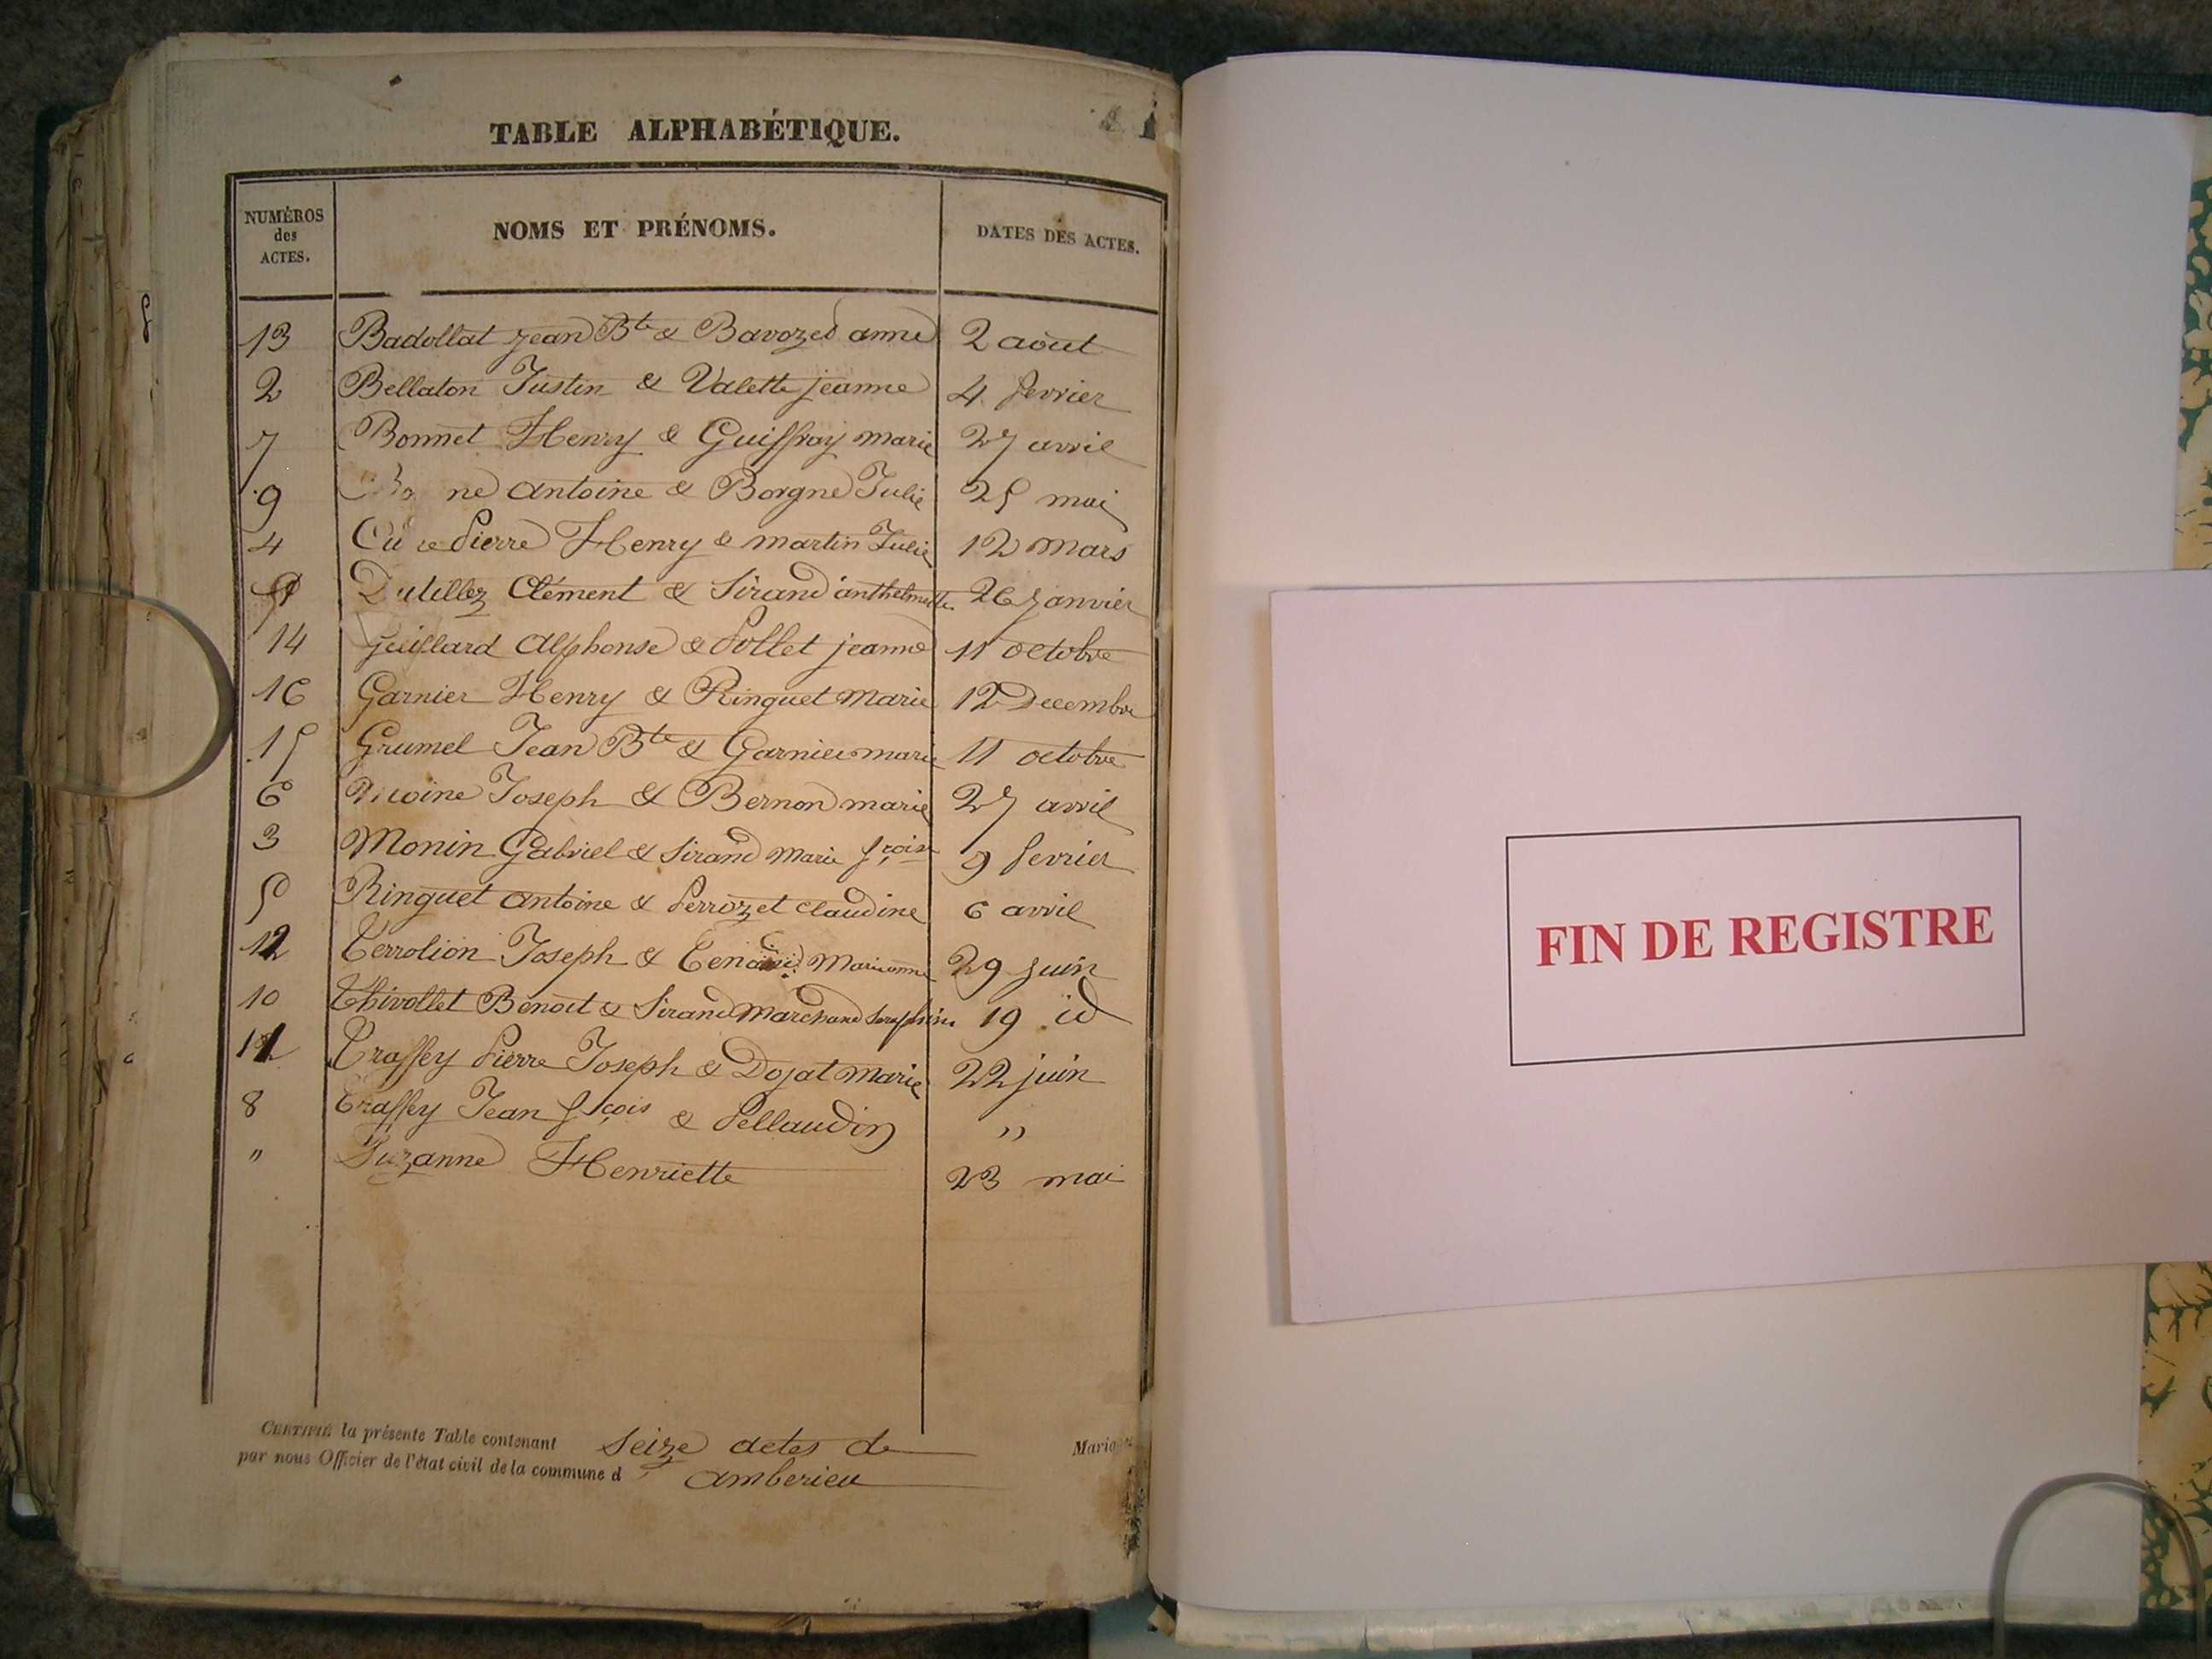 TABLE ALPHABÉTIQUE.
NUMÉROS des ACTES. NOMS ET PRÉNOMS. DATES DES ACTES.
13 Badollat Jean Bte & Bavozed anne 2 aout
2 Bellaton Justin & Valette jeanne 4 fevrier
7 Bonnet Henry & Guiffray marie 27 avril
9 ne Antoine & Borgne Julie 25 mai
4 Pierre Henry & martin Julie 12 mars
Dutillez Clément & Sirand anthelmette 26 Janvier
14 Guillard Alphonse & Pollet jeanne 11 octobre
16 Garnier Henry & Ringuet Marie 12 Decembre
15 Grumel Jean Bte & Garnier marie 11 octobre
6 Moine Joseph & Bernon marie 27 avril
3 Monin Gabriel & Sirand Marie fçoise 9 fevrier
5 Ringuet antoine & Perrozet claudine 6 avril
12 Terrolion Joseph & Marianne 29 Juin
10 Thivollet Benoit & Sirand Marchand 19 id
11 Traffey Pierre Joseph & Dojat Marie 22 juin
8 Traffey Jean fçois & Pellaudin "
" Suzanne Henriette 23 mai
CERTIFIÉ la présente Table contenant Seize actes de
par nous Officier de l'état civil de la commune d amberieu
FIN DE REGISTRE